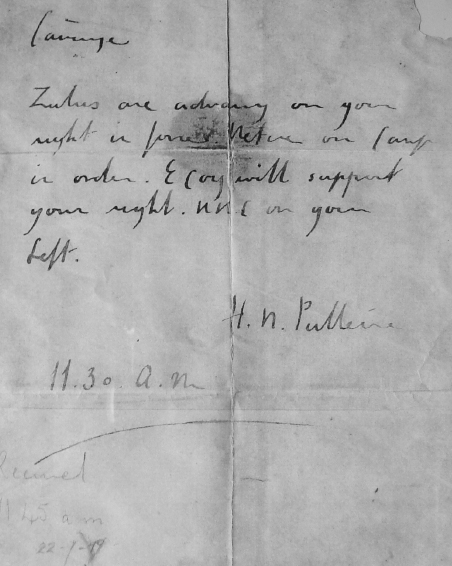 Cavaye
Zulus are advancing on your
right in force. Retire on Camp
in order. E Coy will support
your right. NNC on your
Left.
H. N. Pulleine
11.30. A.M
Received
11 45 a m
22-1-79